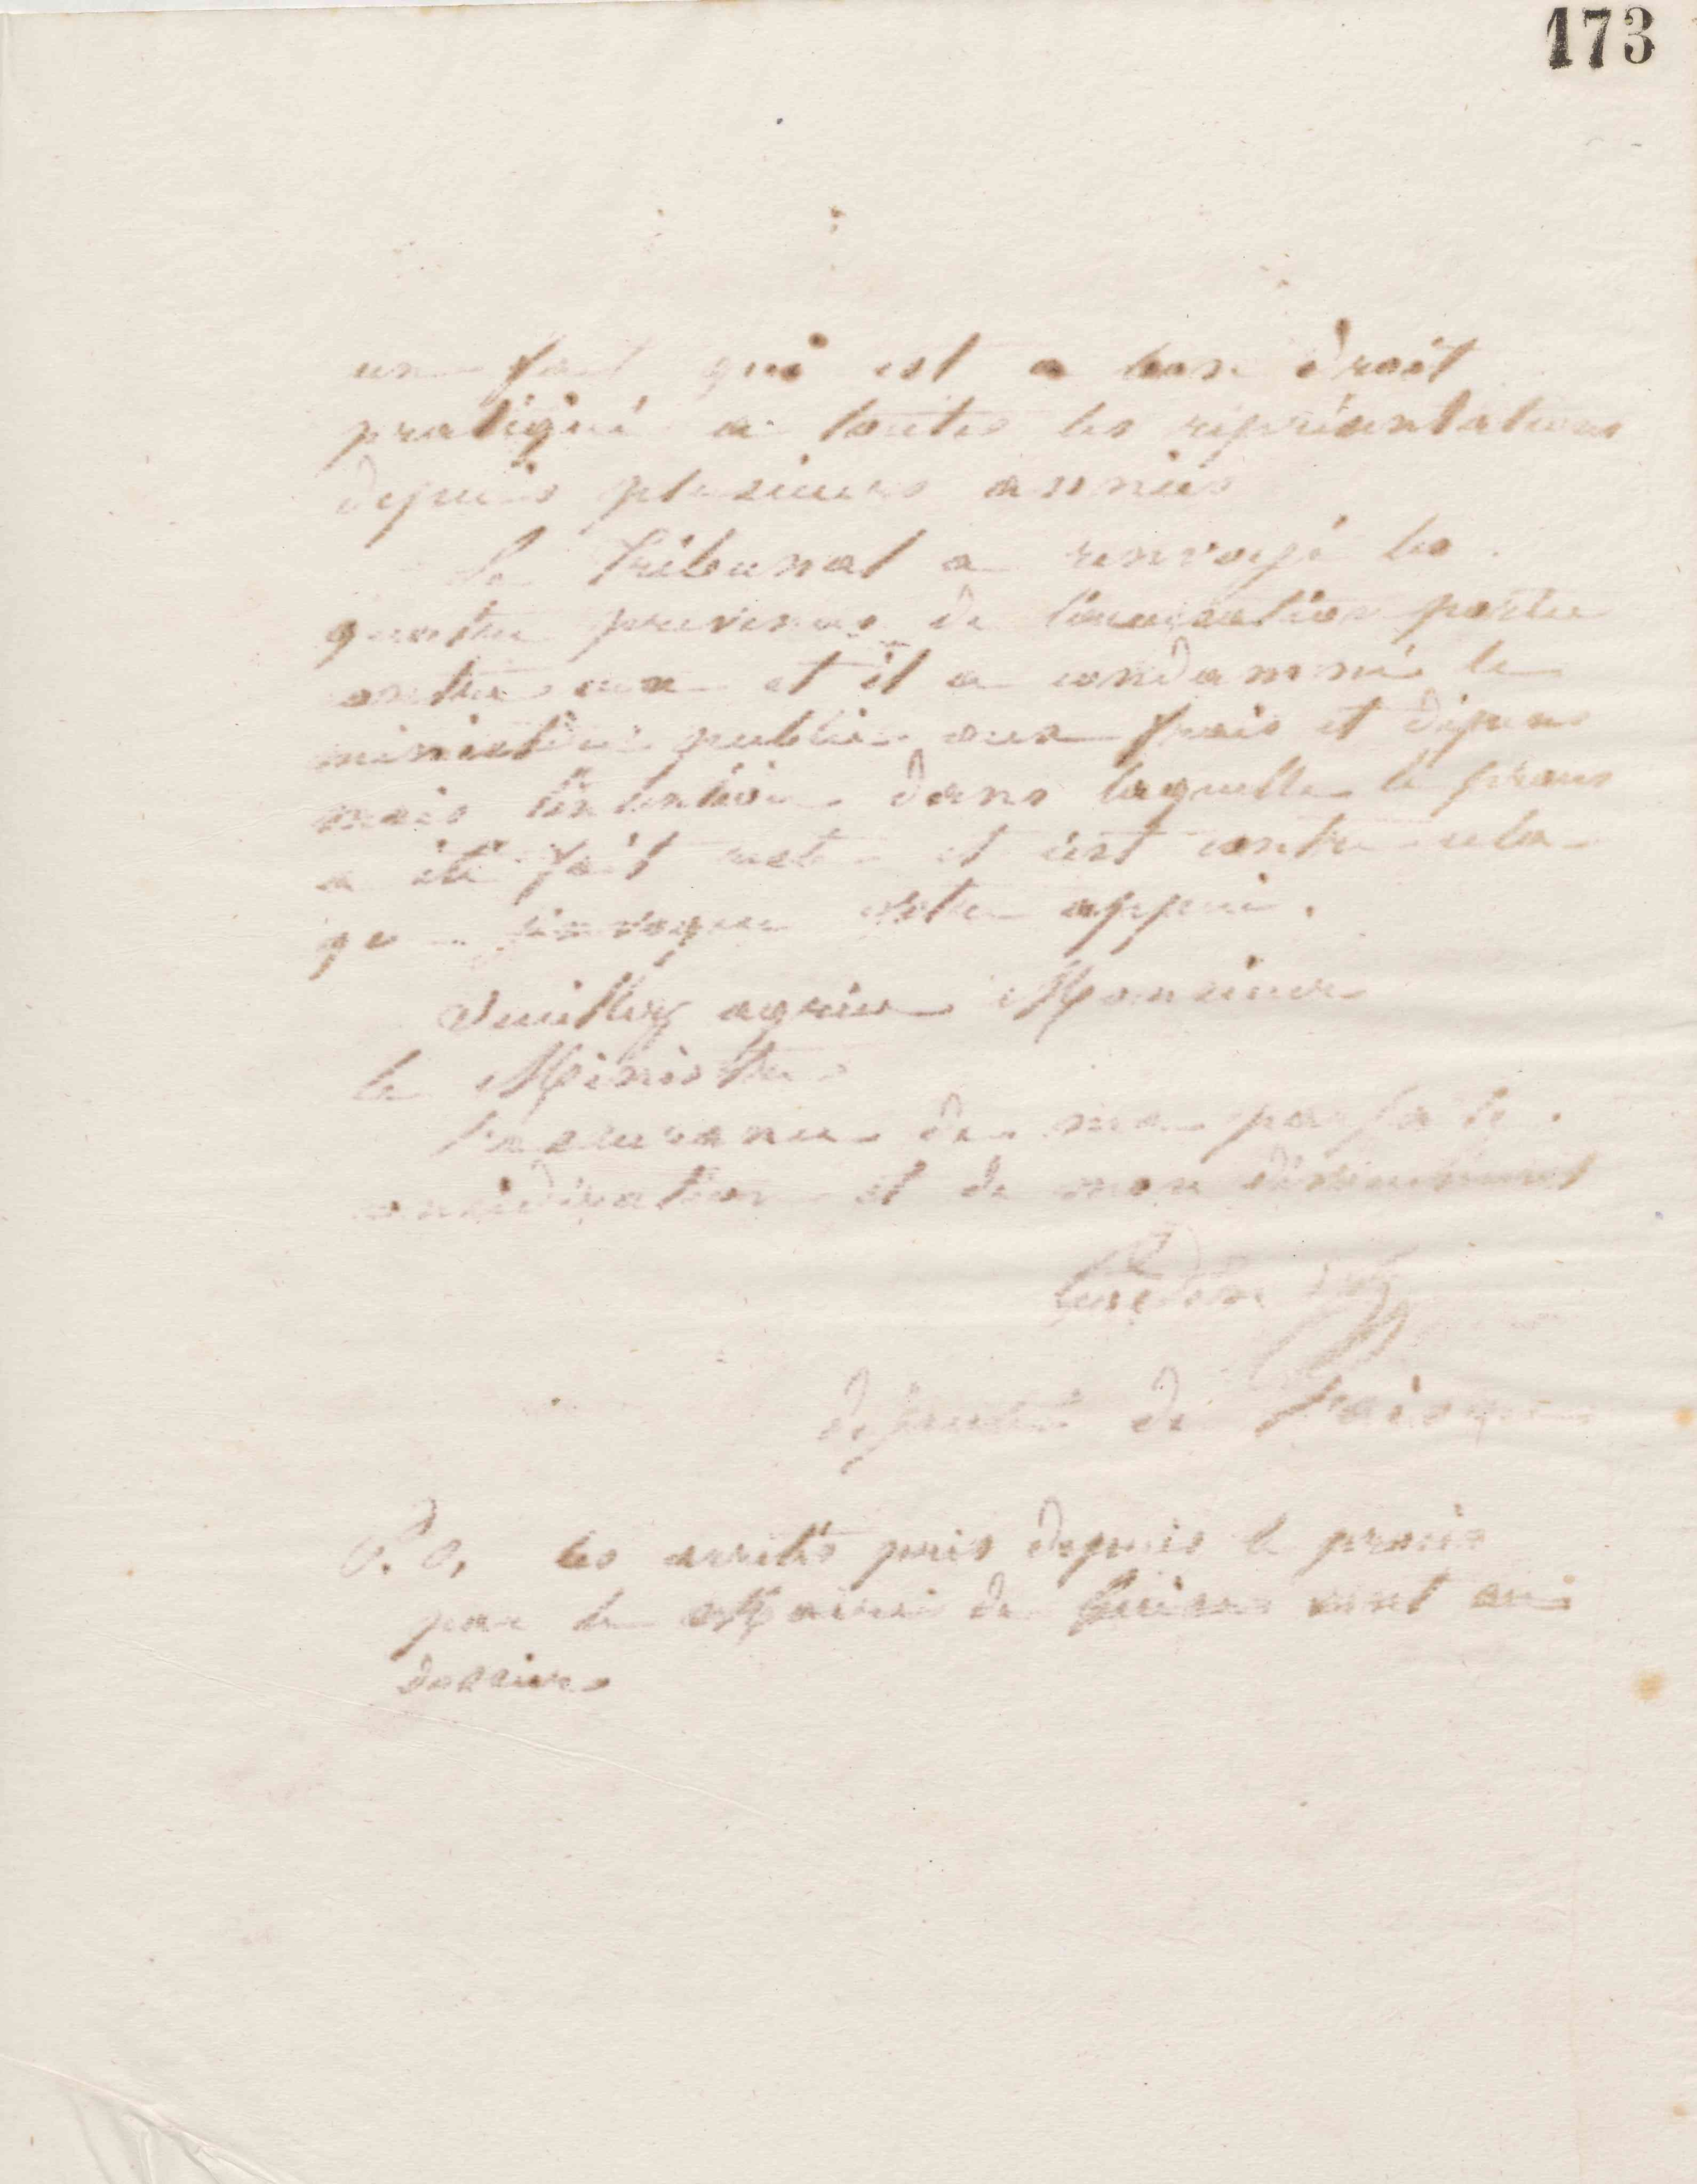 173
un fait qui est a bon droit
pratiqué a toutes les représentations
depuis plusieurs années
Le Tribunal a renvoyé les
quatre prevenus de l'accusation portée
contre eux et il a condamné le
ministère public aux frais et dépens
mais l'intention dans laquelle le proces
a été fait reste et c'est contre cela
que j'invoque votre appui.
Veuillez agréer Monsieur
le Ministre
l'assurance de ma parfaite
considération et de mon dévouement
Godin
députe de l'aisne
P.S. les arrêtés pris depuis le procès
par le Maire de Guise sont au
dossier